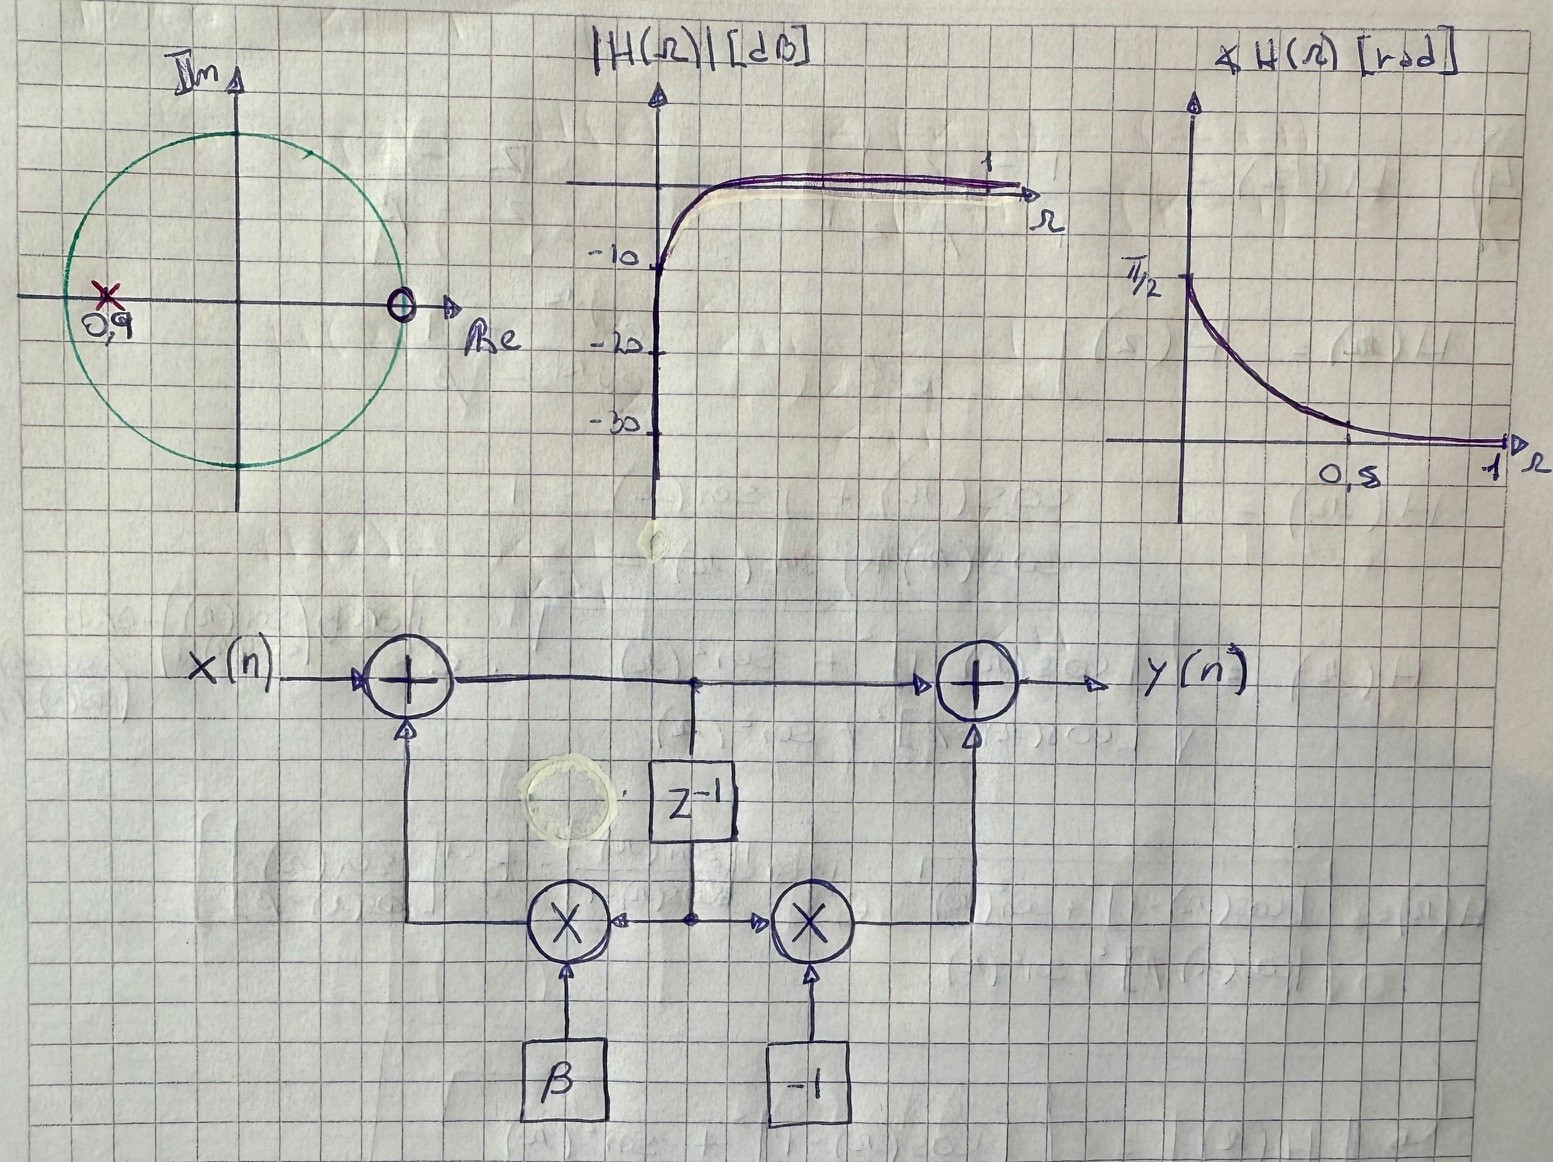 Im
0,9
Re
|H(Ω)| [dB]
1
Ω
-10
-20
-30
∡ H(Ω) [rad]
π/2
0,5
1
Ω
x(n)
+
+
y(n)
z⁻¹
X
X
β
-1